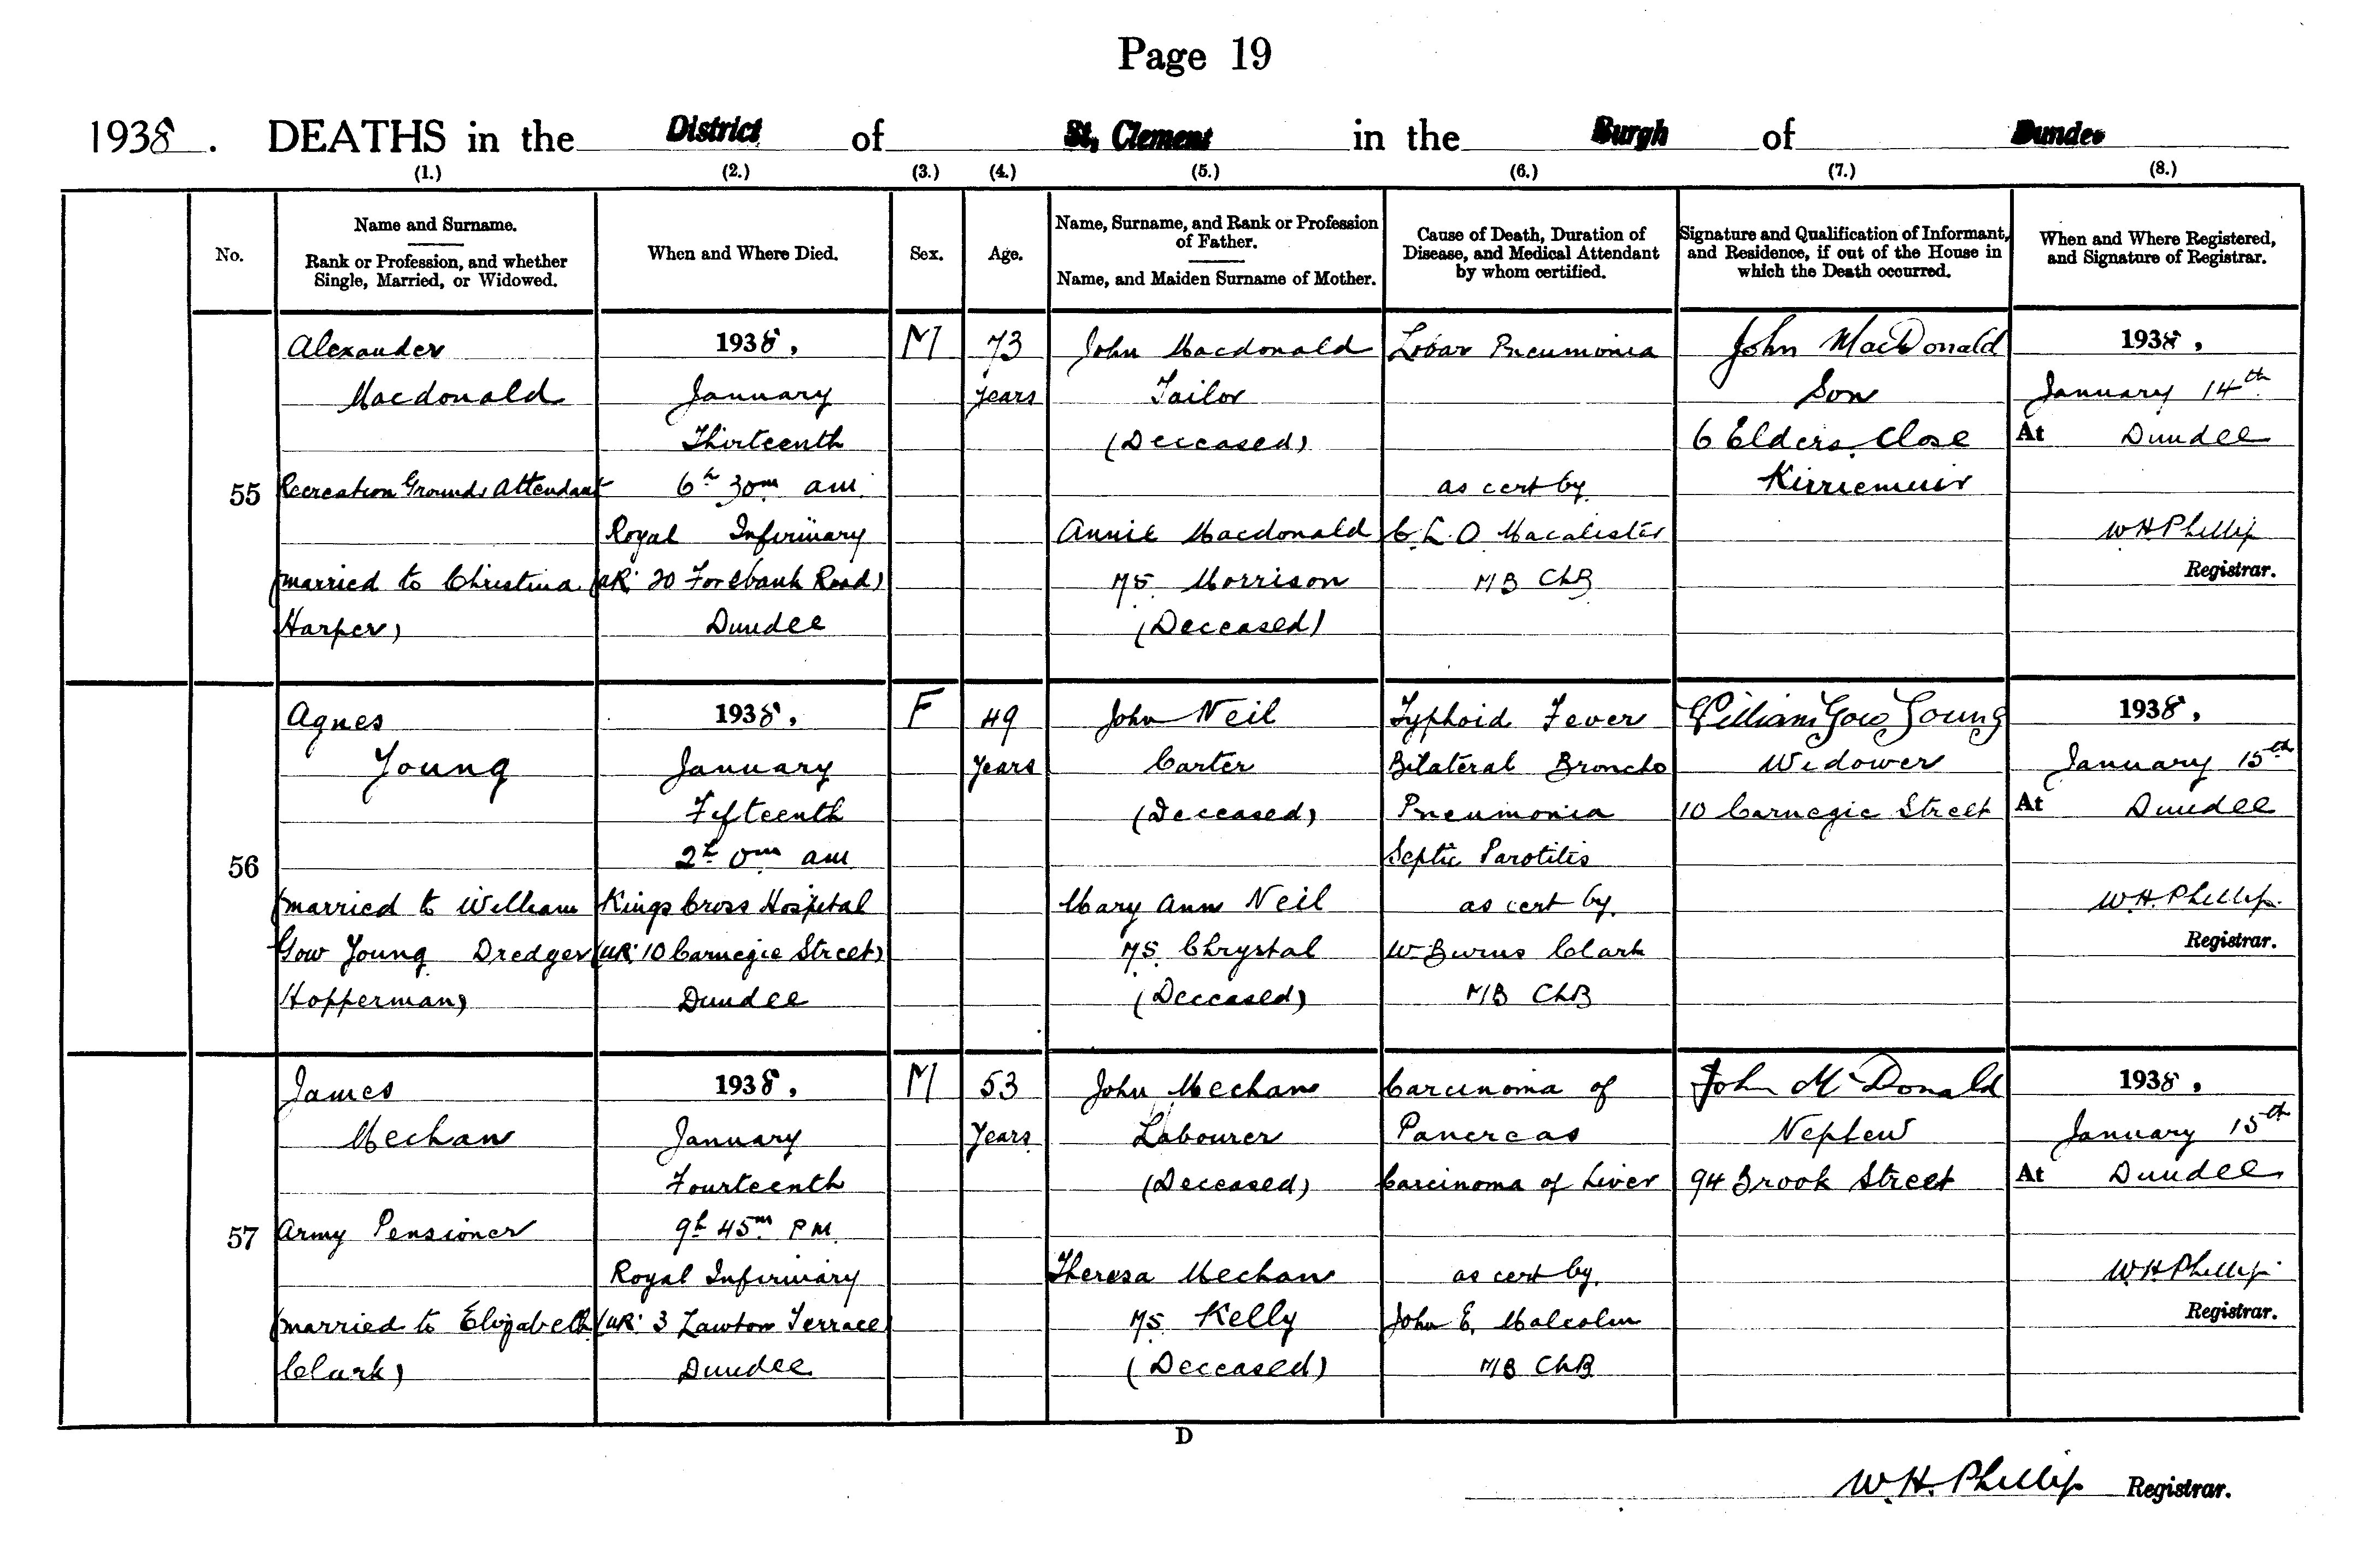 Page 19
1938. DEATHS in the District of St. Clement in the Burgh of Dundee
(1.) (2.) (3.) (4.) (5.) (6.) (7.) (8.)
No.
Name and Surname.
Rank or Profession, and whether
Single, Married, or Widowed.
When and Where Died.
Sex.
Age.
Name, Surname, and Rank or Profession
of Father.
Name, and Maiden Surname of Mother.
Cause of Death, Duration of
Disease, and Medical Attendant
by whom certified.
Signature and Qualification of Informant,
and Residence, if out of the House in
which the Death occurred.
When and Where Registered,
and Signature of Registrar.
55
Alexander
Macdonald
Recreation Grounds Attendant
(married to Christina
Harper)
1938,
January
Thirteenth
6h 30m am
Royal Infirmary
(UR: 20 Forebank Road)
Dundee
M
73
years
John Macdonald
Tailor
(Deceased)
Annie Macdonald
MS. Morrison
(Deceased)
Lobar Pneumonia
as cert by
C. L. O. Macalister
MB ChB
John MacDonald
Son
6 Elders Close
Kirriemuir
1938,
January 14th
At Dundee
W H Phillip
Registrar.
56
Agnes
Young
(married to William
Gow Young Dredger
Hopperman)
1938,
January
Fifteenth
2h 0m am
Kings Cross Hospital
(UR: 10 Carnegie Street)
Dundee
F
49
years
John Neil
Carter
(Deceased)
Mary Ann Neil
MS. Chrystal
(Deceased)
Typhoid Fever
Bilateral Broncho
Pneumonia
Septic Parotitis
as cert by
W Burns Clark
MB ChB
William Gow Young
Widower
10 Carnegie Street
1938,
January 15th
At Dundee
W. H. Phillip.
Registrar.
57
James
Mechan
Army Pensioner
(married to Elizabeth
Clark)
1938,
January
Fourteenth
9h 45m PM
Royal Infirmary
(UR: 3 Lawton Terrace)
Dundee
M
53
years
John Mechan
Labourer
(Deceased)
Theresa Mechan
MS. Kelly
(Deceased)
Carcinoma of
Pancreas
Carcinoma of Liver
as cert by
John E. Malcolm
MB ChB
John McDonald
Nephew
94 Brook Street
1938,
January 15th
At Dundee
W H Phillip
Registrar.
D
W. H. Phillip Registrar.